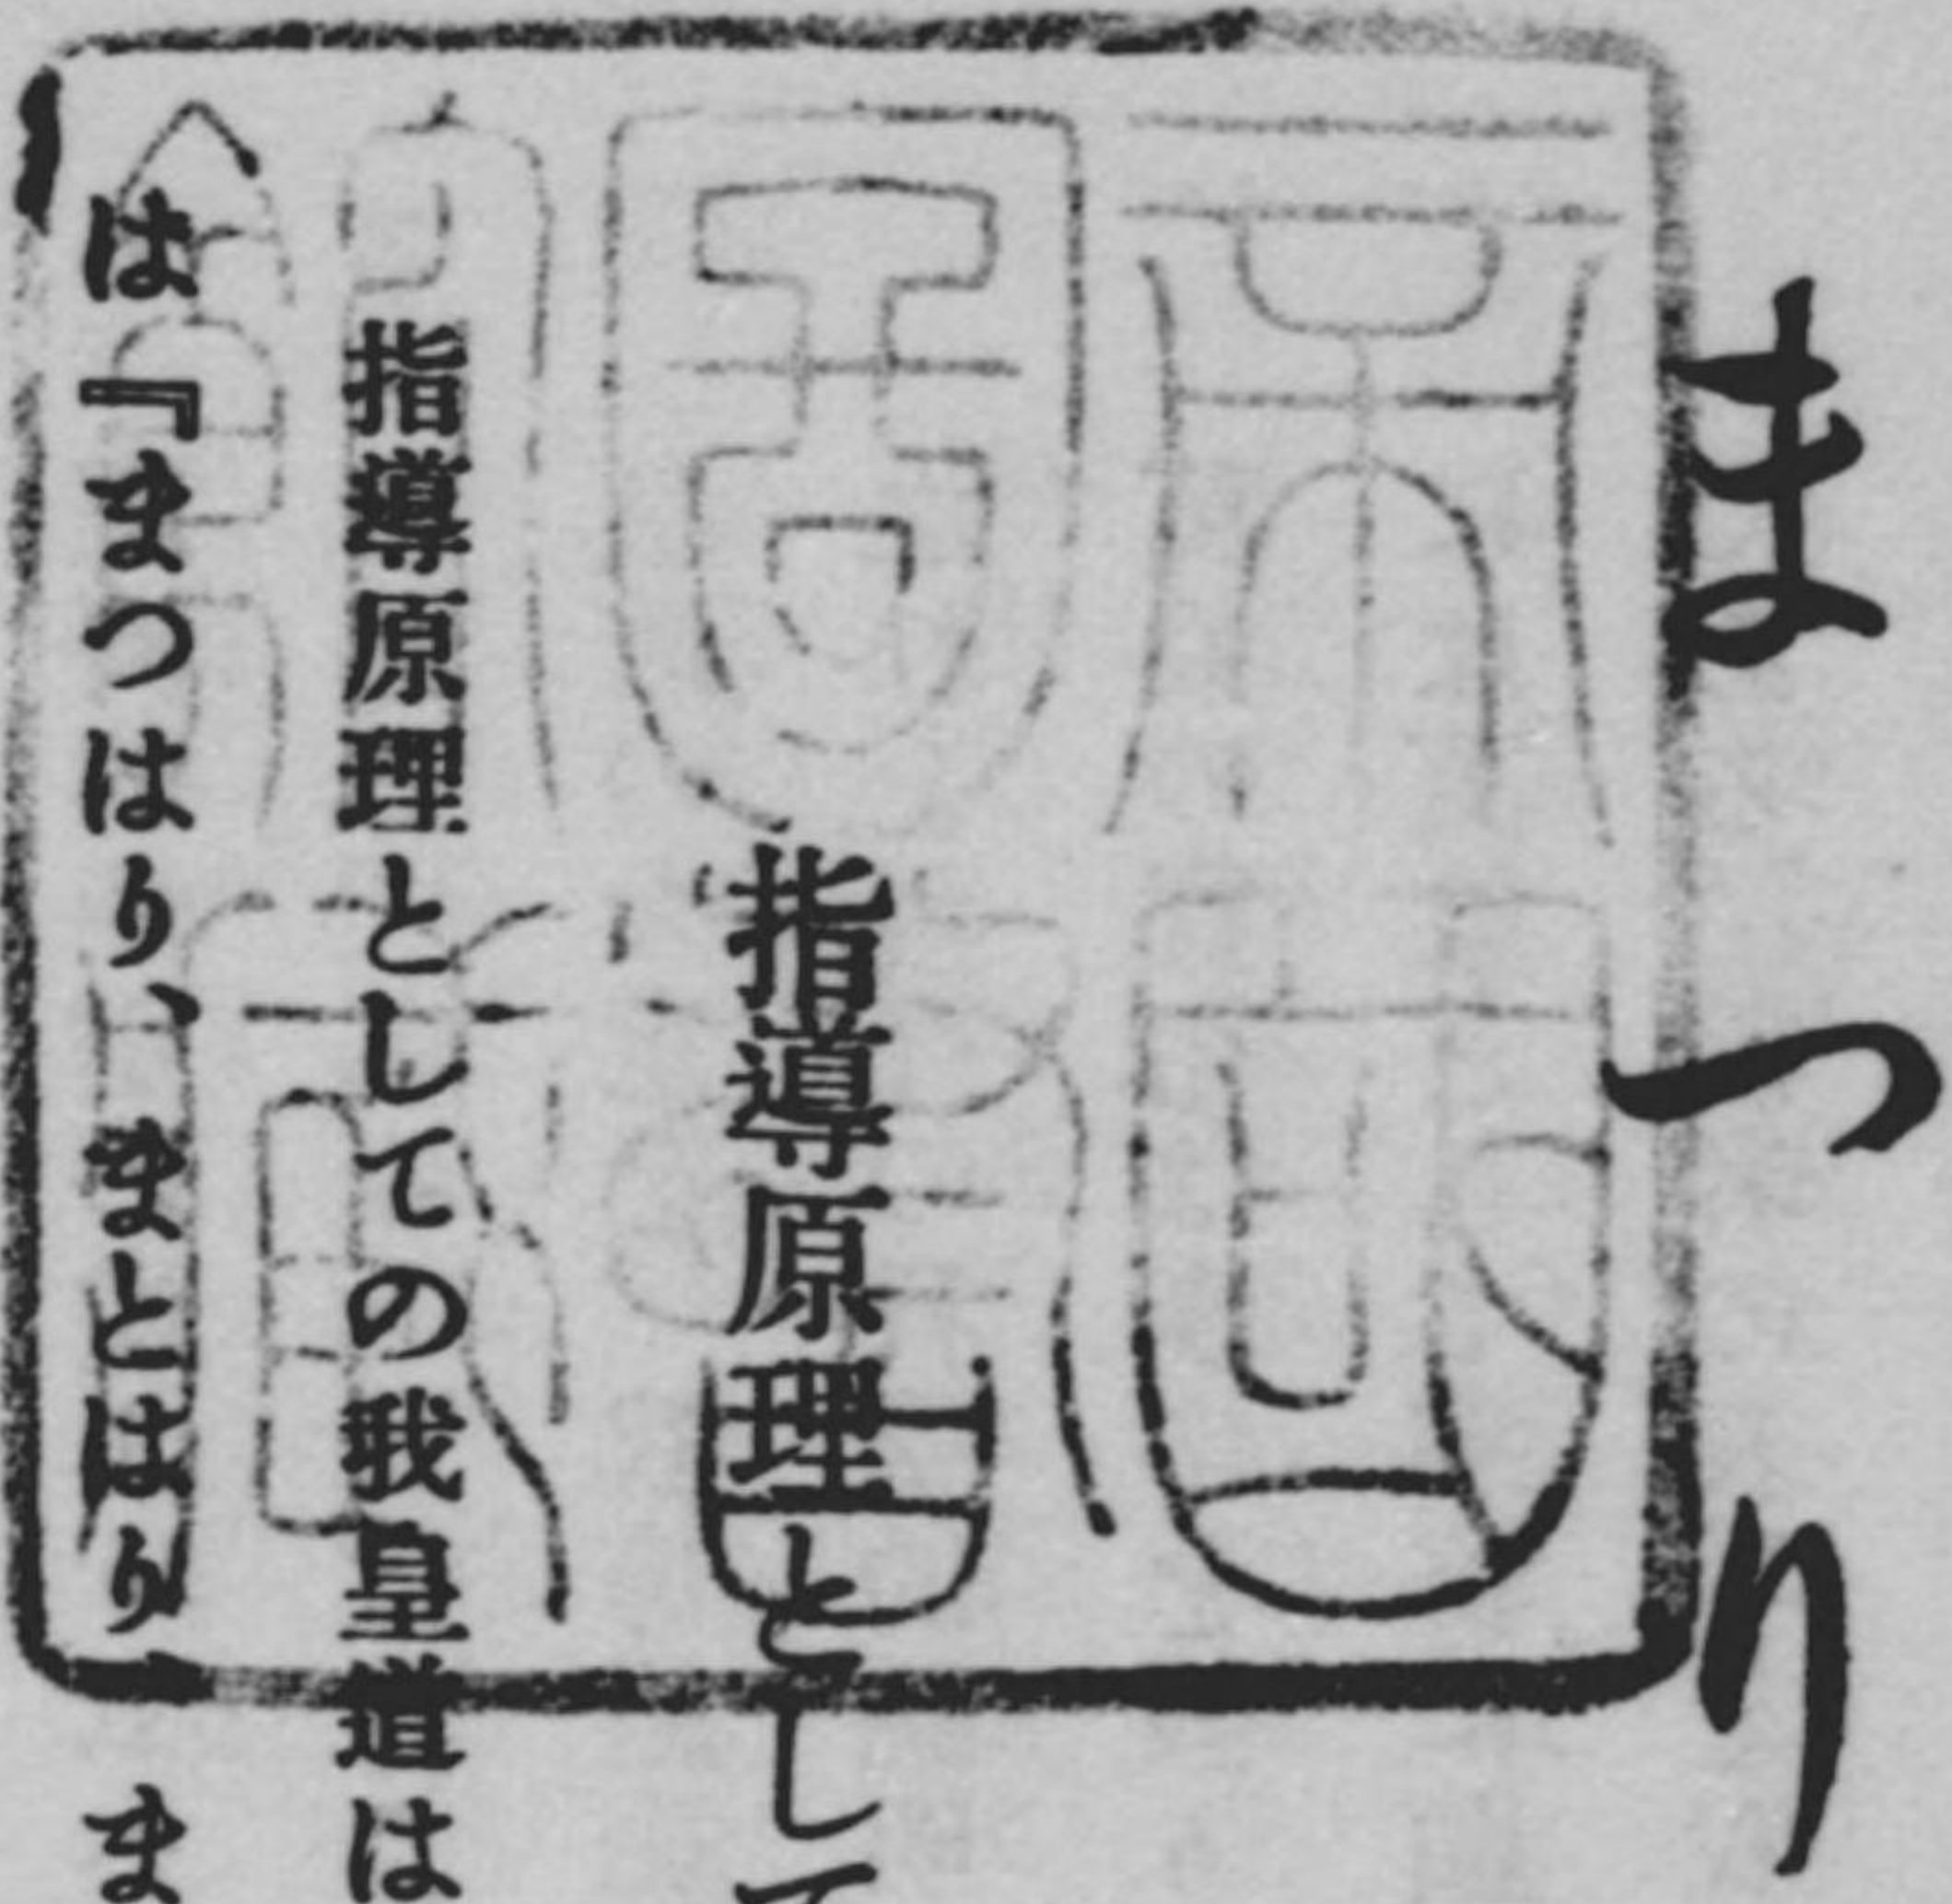 まつり
指導原理として
指導原理としての我皇道は
は『まつはり、まとはり、ま